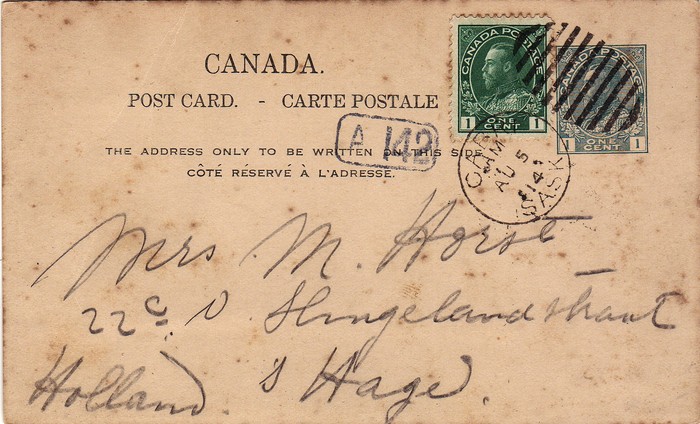 CANADA POSTAGE
1 ONE CENT 1
CANADA POSTAGE
1 ONE CENT 1
CANADA.
POST CARD. - CARTE POSTALE
A 142
THE ADDRESS ONLY TO BE WRITTEN ON THIS SIDE
CÔTÉ RÉSERVÉ À L'ADRESSE.
AU 5
14
SASK
Mrs M. Horst
22c v Slingelandtstraat
Holland. s Hage.